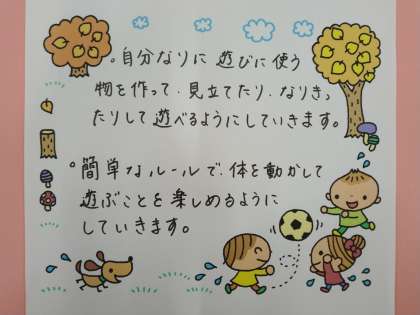 。自分なりに 遊びに使う
物を作って、見立てたり、なりきっ
たりして 遊べるようにしていきます。
。簡単なルールで、体を動かして
遊ぶことを楽しめるように
していきます。